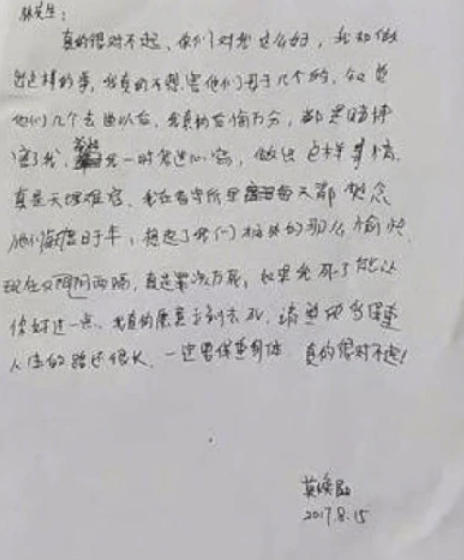 林先生：
真的很对不起，你们对我这么好，我却做
出这样的事，我真的不想害他们母子几个的，知道
他们几个去世以后，我真的后悔万分，都是赌博
害了我，我一时鬼迷心窍，做出这样事情，
真是天理难容，我在看守所里每天都想念
他们，想起了我们相处的那么愉快，
现在阴阳两隔，真是罪该万死，如果我死了能让
你好过一点，我真的愿意立刻去死，请您保重
人生的路还很长，一定要保重身体，真的很对不起！
莫焕晶
2017.8.15